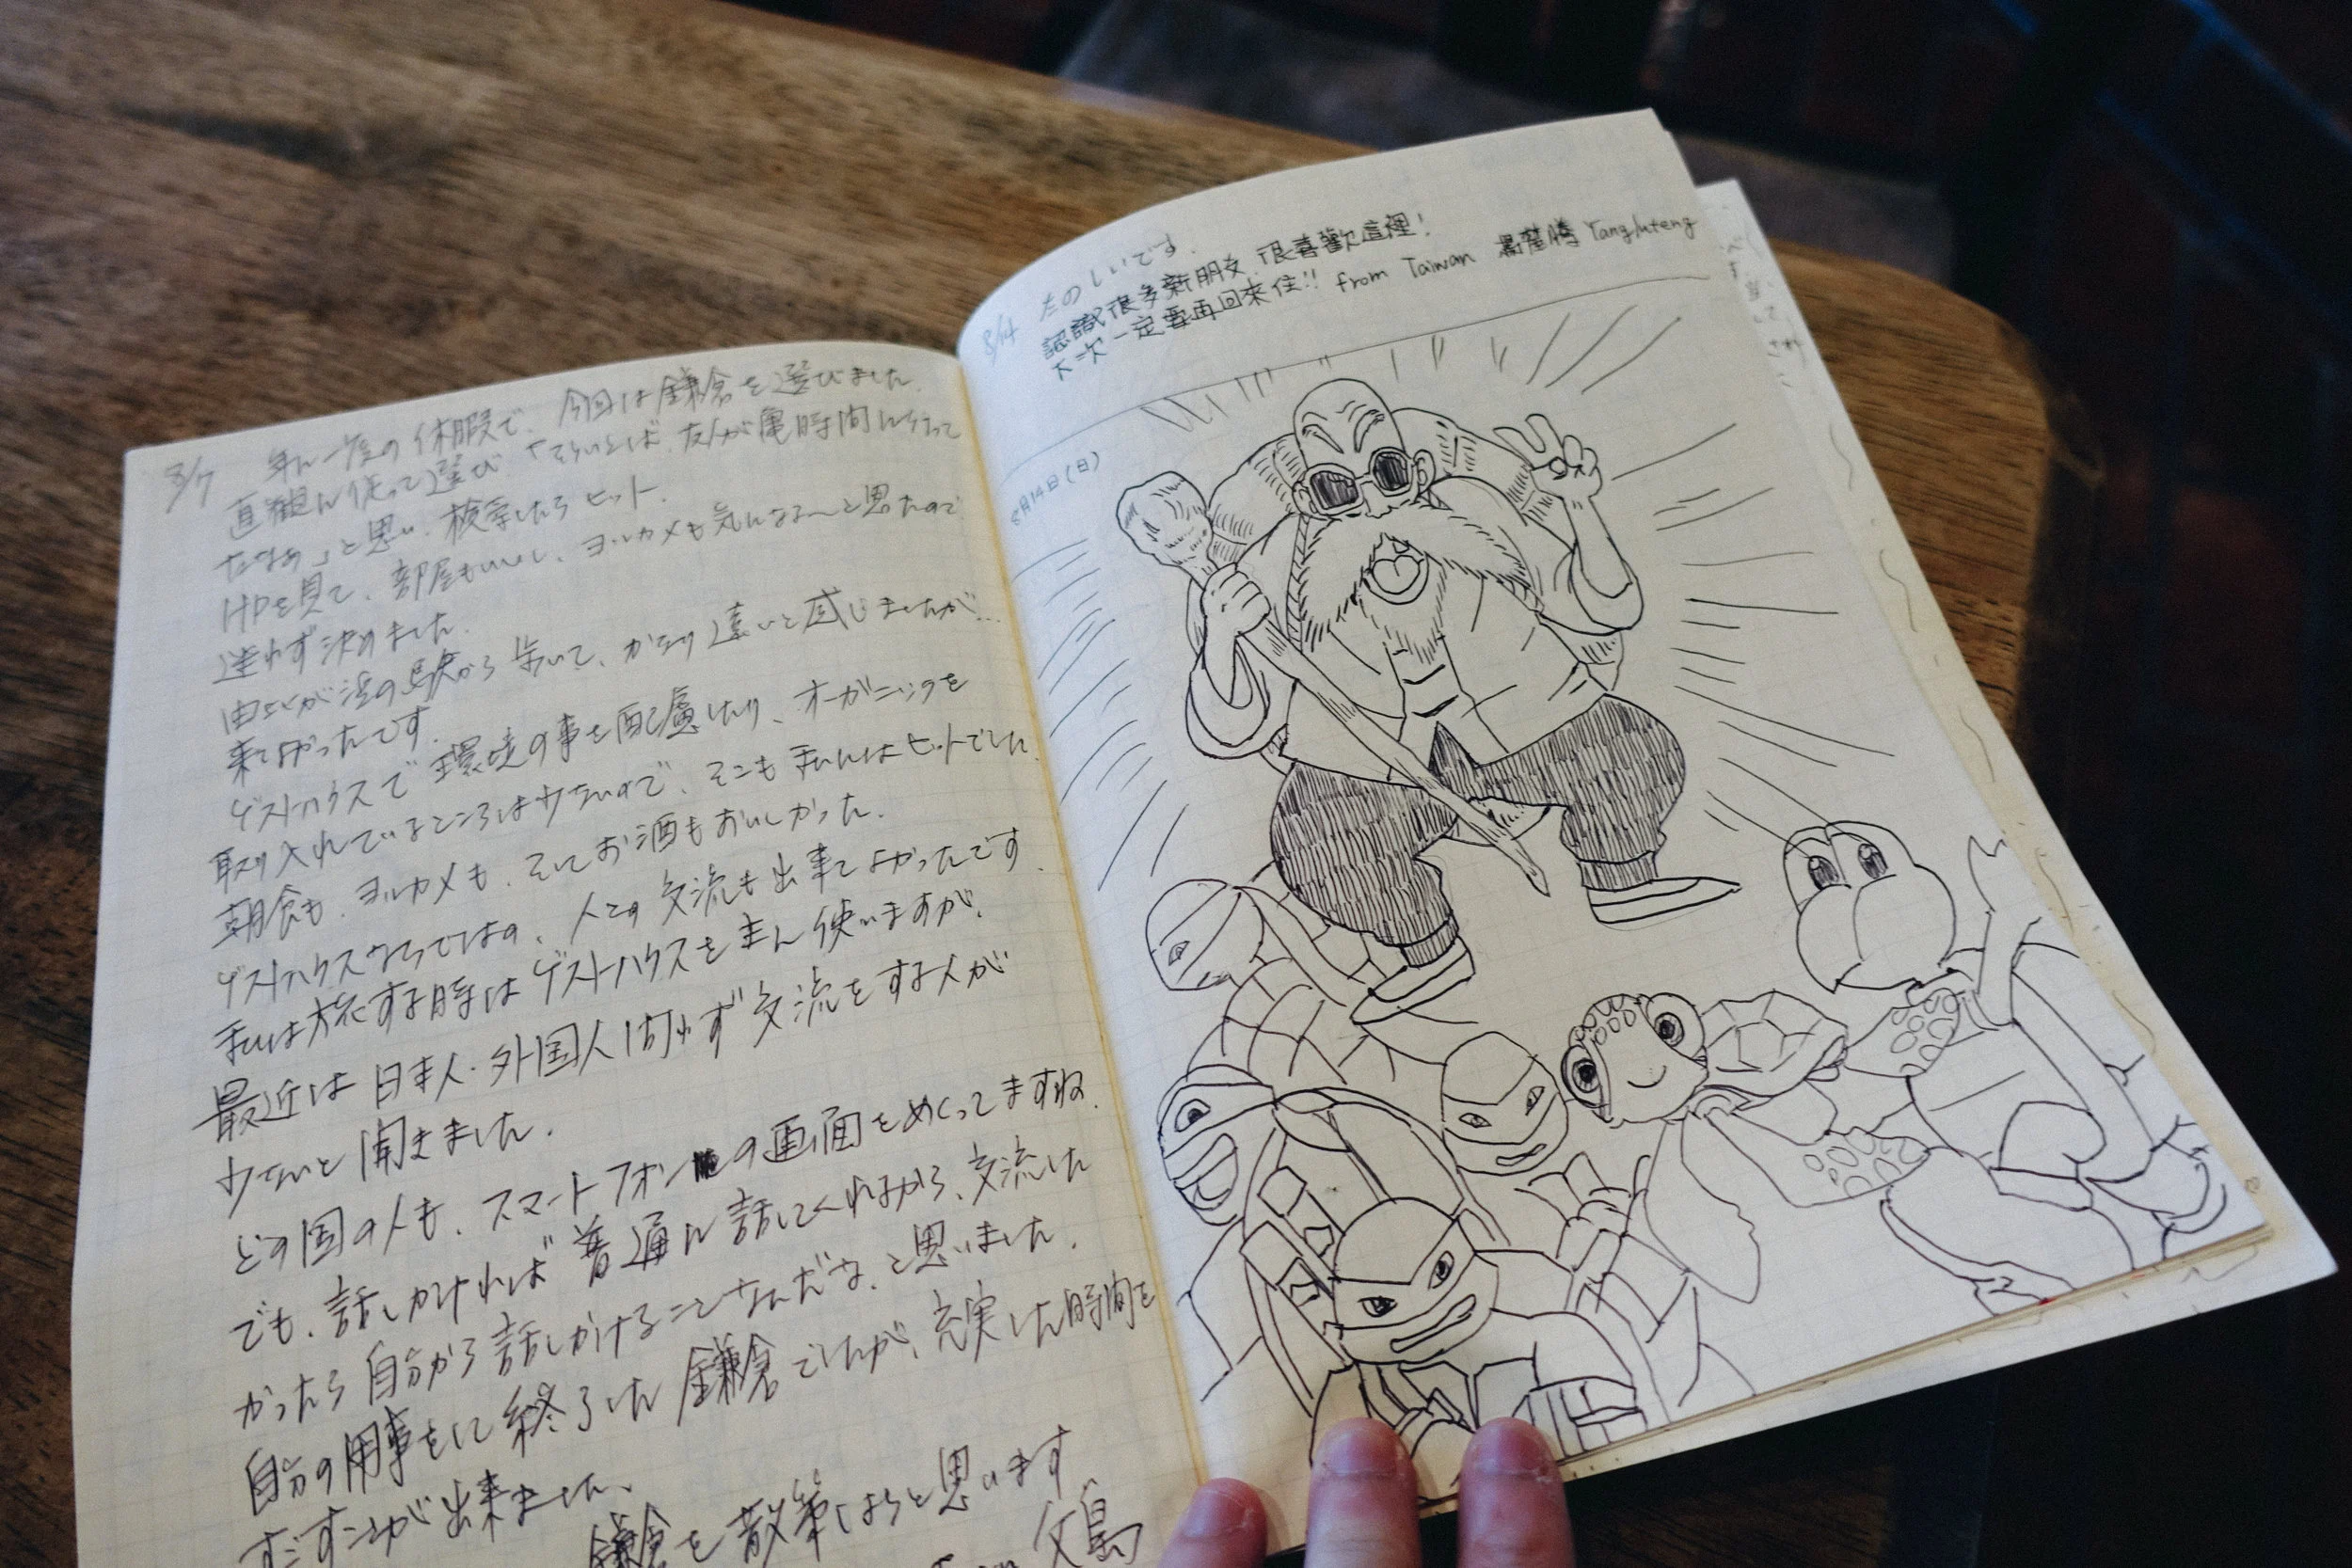 8/7 年に一度の休暇で、今回は鎌倉を選びました。
直観に従って選び「そういえば、友人が亀時間に行って
たなぁ」と思い、検索したらヒット。
HPを見て、部屋もいいし、ヨルカメも気になる〜と思ったので
迷わず決めました。
由比が浜の駅から歩いて、かなり遠いと感じましたが…
来てよかったです。
ゲストハウスで環境の事を配慮したり、オーガニックを
取り入れているところは少ないので、そこも私にはヒットでした。
朝食も、ヨルカメも、そしてお酒もおいしかった。
ゲストハウスならではの、人との交流も出来てよかったです。
私は旅する時はゲストハウスを主に使いますが、
最近は日本人・外国人問わず交流をする人が
少ないと聞きました。
どの国の人も、スマートフォンの画面をめくってますね。
でも、話しかければ普通に話してくれるから、交流した
かったら自分から話しかけることなんだな、と思いました。
自分の用事をに終了した鎌倉でしたが、充実した時間を
すごすことが出来ました。
鎌倉を散策しようと思います
たのしいです。
8/14 認識很多新朋友,很喜歡這裡!
下次一定要再回來住!! from Taiwan Yangluteng
8月14日(日)